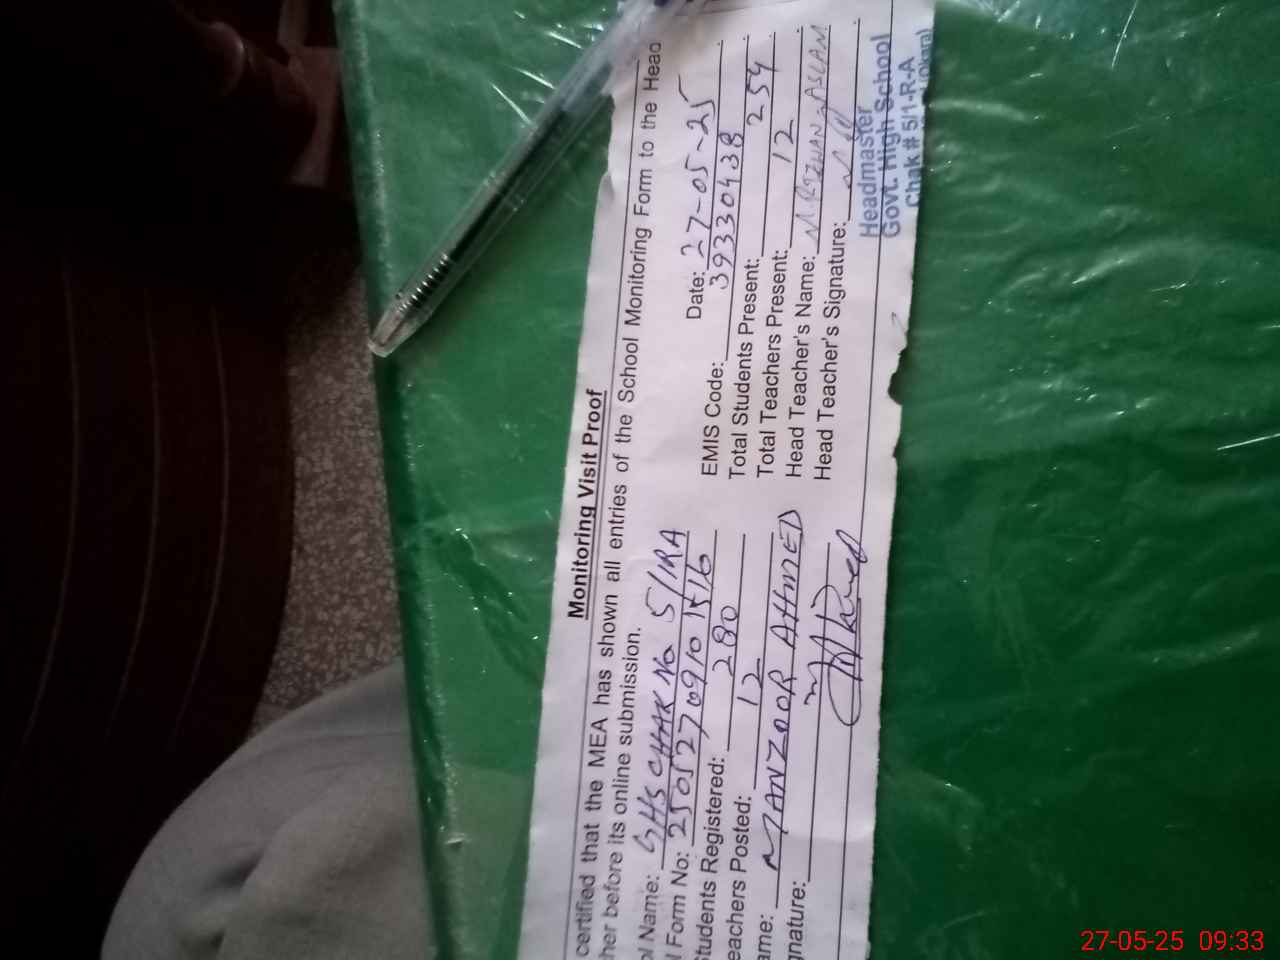 Monitoring Visit Proof
certified that the MEA has shown all entries of the School Monitoring Form to the Head
her before its online submission.
ol Name: GHS CHAK No 5/1RA Date: 27-05-25
l Form No: 25052709101516 EMIS Code: 39330438
Students Registered: 280 Total Students Present: 254
eachers Posted: 12 Total Teachers Present: 12
ame: MANZOOR AHMED Head Teacher's Name: M RIZWAN ASLAM
gnature: Head Teacher's Signature:
Headmaster
Govt. High School
Chak # 5/1-R-A
27-05-25 09:33